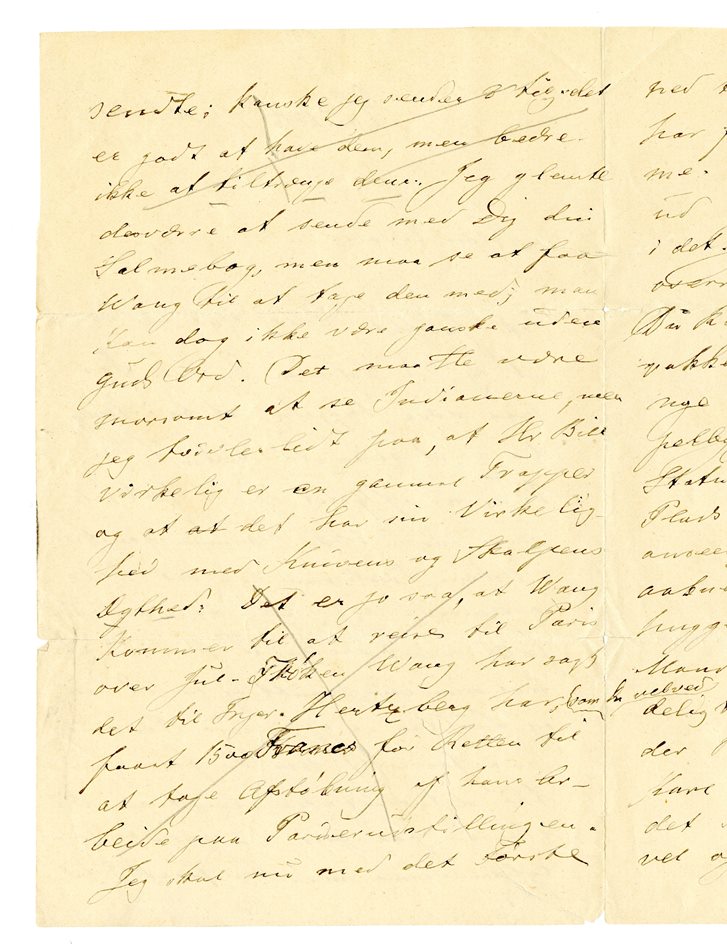 sendte; kanske jeg sender Dig det
er godt at have dem, men bedre
ikke at tiltrænge dem. Jeg glemte
desværre at sende med Dig din
Salmebog, men maa se at faa
Wang til at tage den med; man
kan dog ikke være ganske uden
Guds Ord. Det maatte være
morsomt at se Indianerne, men
jeg tvivler lidt paa, at Hr Bill
virkelig er en gammel Trapper
og at at det har sin Virkelig-
hed med Knivens og Skalpens
Ægthed. Det er jo saa, at Wang
kommer til at reise til Paris
over Jul - Wang har sagt
det til Hertzberg har, som Du velved
faaet 1500 Francs for Retten til
at tage Afstøbning af hans Ar-
beide paa Pariserudstillingen.
Jeg skal nu med det Første
ned
har
me-
ud
i det
Du
pakke
nge
Statu
Plads
aabne
hugge
delig
der
Kare
det
vel og